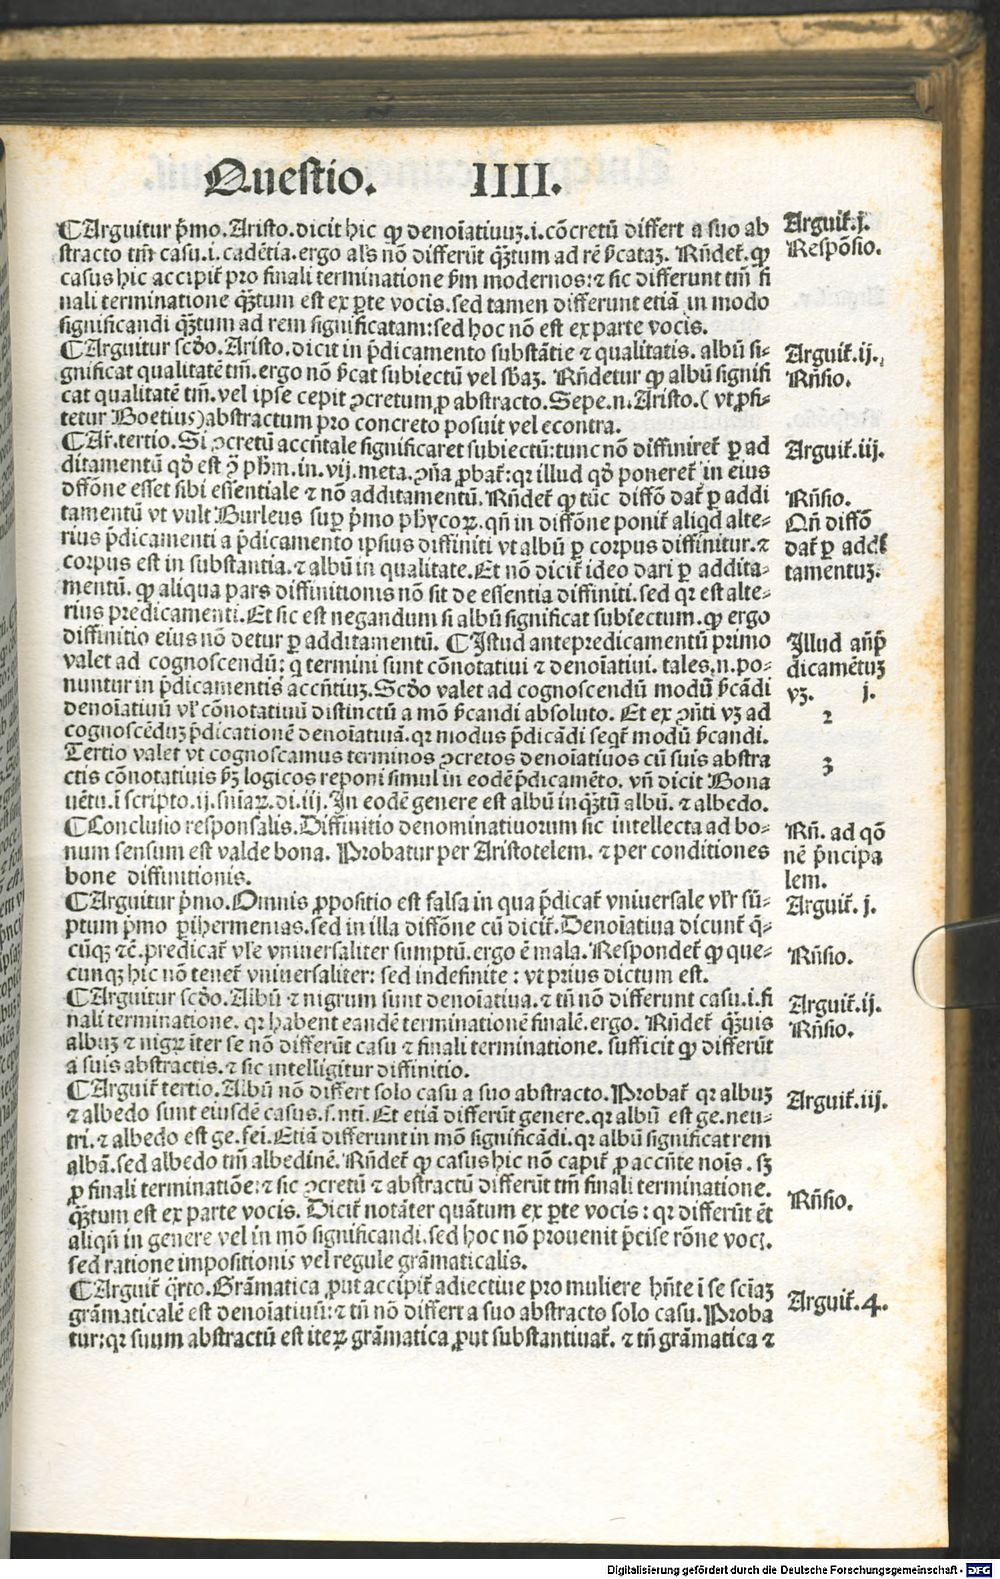 Questio. IIII.
¶Arguitur p̄mo. Aristo. dicit hic ꝙ denoīatiuuꝫ .i. cōcretū differt a suo ab
stracto tm̄ casu .i. cadētia. ergo als nō differūt qꝫtum ad rē p̄cataꝫ. Rñdet̄. ꝙ
casus hic accipit̄ pro finali terminatione ẜm modernos: ⁊ sic differunt tm̄ fi
nali terminatione qꝫtum est ex ꝑte vocis. sed tamen differunt etiā in modo
significandi qꝫtum ad rem significatam: sed hoc nō est ex parte vocis.
¶Arguitur scd̄o. Aristo. dicit in p̄dicamento substātie ⁊ qualitatis. albū si-
gnificat qualitatē tm̄. ergo nō ẜcat subiectū vel sb̄aꝫ. Rñdetur ꝙ albū signifi
cat qualitatē tm̄. vel ipse cepit ꝯcretum ꝓ abstracto. Sepe .n. Aristo. (vt ꝓfi-
tetur Boetius) abstractum pro concreto posuit vel econtra.
¶Ar̄. tertio. Si ꝯcretū accn̄tale significaret subiectū: tunc nō diffiniret̄ ꝑ ad
ditamentū qd̄ est ꝯ̄ ph̄m. in .vij. meta. ꝯn̄a ꝓbat̄: qr illud qd̄ poneret̄ in eius
dffōne esset sibi essentiale ⁊ nō additamentū. Rñdet̄ ꝙ tūc diffō dat̄ ꝑ addi
tamentū vt vult Burleus suꝑ p̄mo phycoꝝ. qn̄ in diffōne ponit̄ aliqd alte-
rius p̄dicamenti a p̄dicamento ipsius diffiniti vt albū ꝑ corpus diffinitur. ⁊
corpus est in substantia. ⁊ albū in qualitate. Et nō dicit̄ ideo dari ꝑ addita-
mentū. ꝙ aliqua pars diffinitionis nō sit de essentia diffiniti. sed qr est alte-
rius predicamenti. Et sic est negandum si albū significat subiectum. ꝙ ergo
diffinitio eius nō detur ꝑ additamentū. ¶Istud antepredicamentū primo
valet ad cognoscendū: q termini sunt cōnotatiui ⁊ denoīatiui. tales .n. po-
nuntur in p̄dicamentis accn̄tiuꝫ. Scd̄o valet ad cognoscendū modū ẜcādi
denoīatiuū vl̄ cōnotatiuū distinctū a mō ẜcandi absoluto. Et ex ꝯn̄ti vꝫ ad
cognoscēduꝫ p̄dicationē denoīatiuā. qr modus p̄dicādi seqt̄ modū ẜcandi.
Tertio valet vt cognoscamus terminos ꝯcretos denoīatiuos cū suis abstra
ctis cōnotatiuis ẜꝫ logicos reponi simul in eodē p̄dicamēto. vn̄ dicit Bona
uētu. ī scripto .ij. snīaꝝ. di .iij. In eodē genere est albū inqꝫtū albū. ⁊ albedo.
¶Conclusio responsalis. Diffinitio denominatiuorum sic intellecta ad bo-
num sensum est valde bona. Probatur per Aristotelem. ⁊ per conditiones
bone diffinitionis.
¶Arguitur p̄mo. Omnis ꝓpositio est falsa in qua p̄dicat̄ vniuersale vlr̄ sū-
ptum p̄mo ꝑihermenias. sed in illa diffōne cū dicit̄. Denoīatiua dicunt̄ q̄-
cūqꝫ ⁊c̄. predicat̄ vl̄e vniuersaliter sumptū. ergo ē mala. Respondet̄ ꝙ que-
cunqꝫ hic nō tenet̄ vniuersaliter: sed indefinite: vt prius dictum est.
¶Arguitur scd̄o. Albū ⁊ nigrum sunt denoīatiua. ⁊ tn̄ nō differunt casu .i. fi
nali terminatione. qr habent eandē terminationē finalē. ergo. Rñdet̄ qꝫuis
albuꝫ ⁊ nigꝝ īter se nō differūt casu ⁊ finali terminatione. sufficit ꝙ differūt
a suis abstractis. ⁊ sic intelligitur diffinitio.
¶Arguit̄ tertio. Albū nō differt solo casu a suo abstracto. Probat̄ qr albuꝫ
⁊ albedo sunt eiusdē casus .s. nti. Et etiā differūt genere. qr albū est ge. neu-
tri. ⁊ albedo est ge. fei. Etiā differunt in mō significādi. qr albū significat rem
albā. sed albedo tm̄ albedinē. Rñdet̄ ꝙ casus hic nō capit̄ ꝓ accn̄te noīs. sꝫ
ꝓ finali terminatiōe: ⁊ sic ꝯcretū ⁊ abstractū differūt tm̄ finali terminatione.
qꝫtum est ex parte vocis. Dicit̄ notāter quātum ex ꝑte vocis: qr differūt ēt
aliqn̄ in genere vel in mō significandi. sed hoc nō prouenit p̄cise rōne vocꝭ.
sed ratione impositionis vel regule grāmaticalis.
¶Arguit̄ q̄rto. Grāmatica ꝓut accipit̄ adiectiue pro muliere hn̄te ī se scīaꝫ
grāmaticalē est denoīatiuū: ⁊ tn̄ nō differt a suo abstracto solo casu. Proba
tur: qr suum abstractū est iteꝝ grāmatica ꝓut substantiuat̄. ⁊ tn̄ grāmatica ⁊
Arguit̄. j.
Respōsio.
Arguit̄. ij.
Rñsio.
Arguit̄. iij.
Rñsio.
Qn̄ diffō
dat̄ ꝑ addi
tamentuꝫ.
Illud an̄p̄
dicamētuꝫ
vꝫ. j.
2
3
Rñ. ad qō
nē p̄ncipa
lem.
Arguit̄. j.
Rñsio.
Arguit̄. ij.
Rñsio.
Arguit̄. iij.
Rñsio.
Arguit̄. 4.
Digitalisierung gefördert durch die Deutsche Forschungsgemeinschaft - DFG